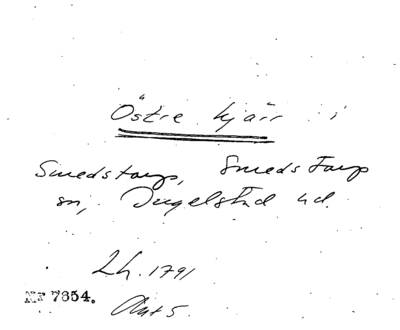 Östre kjärr i
Smedstorps, Smedstorps
sn, Ingelstad hd.
Lh. 1791
Nr 7654.
Akt 5.